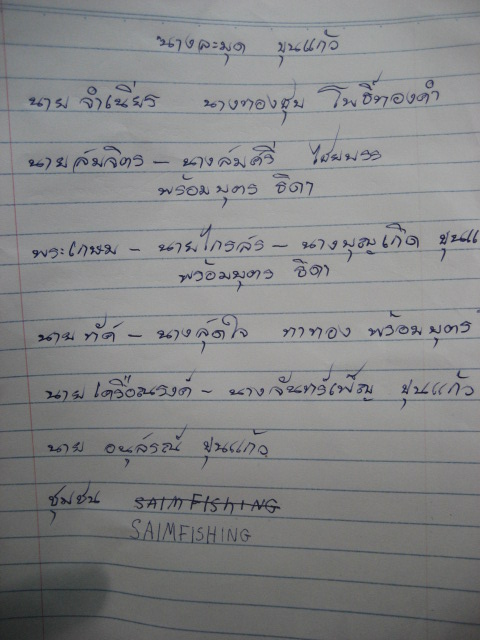 นางละมุด ขุนแก้ว
นาย จำเนียร นางทองชุบ โพธิ์ทองคำ
นายสมจิตร - นางสมศรี ไชยพรร
พร้อมบุตร ธิดา
พระเกษม - นายไกรสร - นางบุญเกิด ขุนแ
พร้อมบุตร ธิดา
นาย ทัศ - นางสุดใจ ทาทอง พร้อมบุตร
นายเครือณรงค์ - นางจันทร์เพ็ญ ขุนแก้ว
นาย อนุสรณ์ ขุนแก้ว
ชุมชน SAIMFISHING
SAIMFISHING